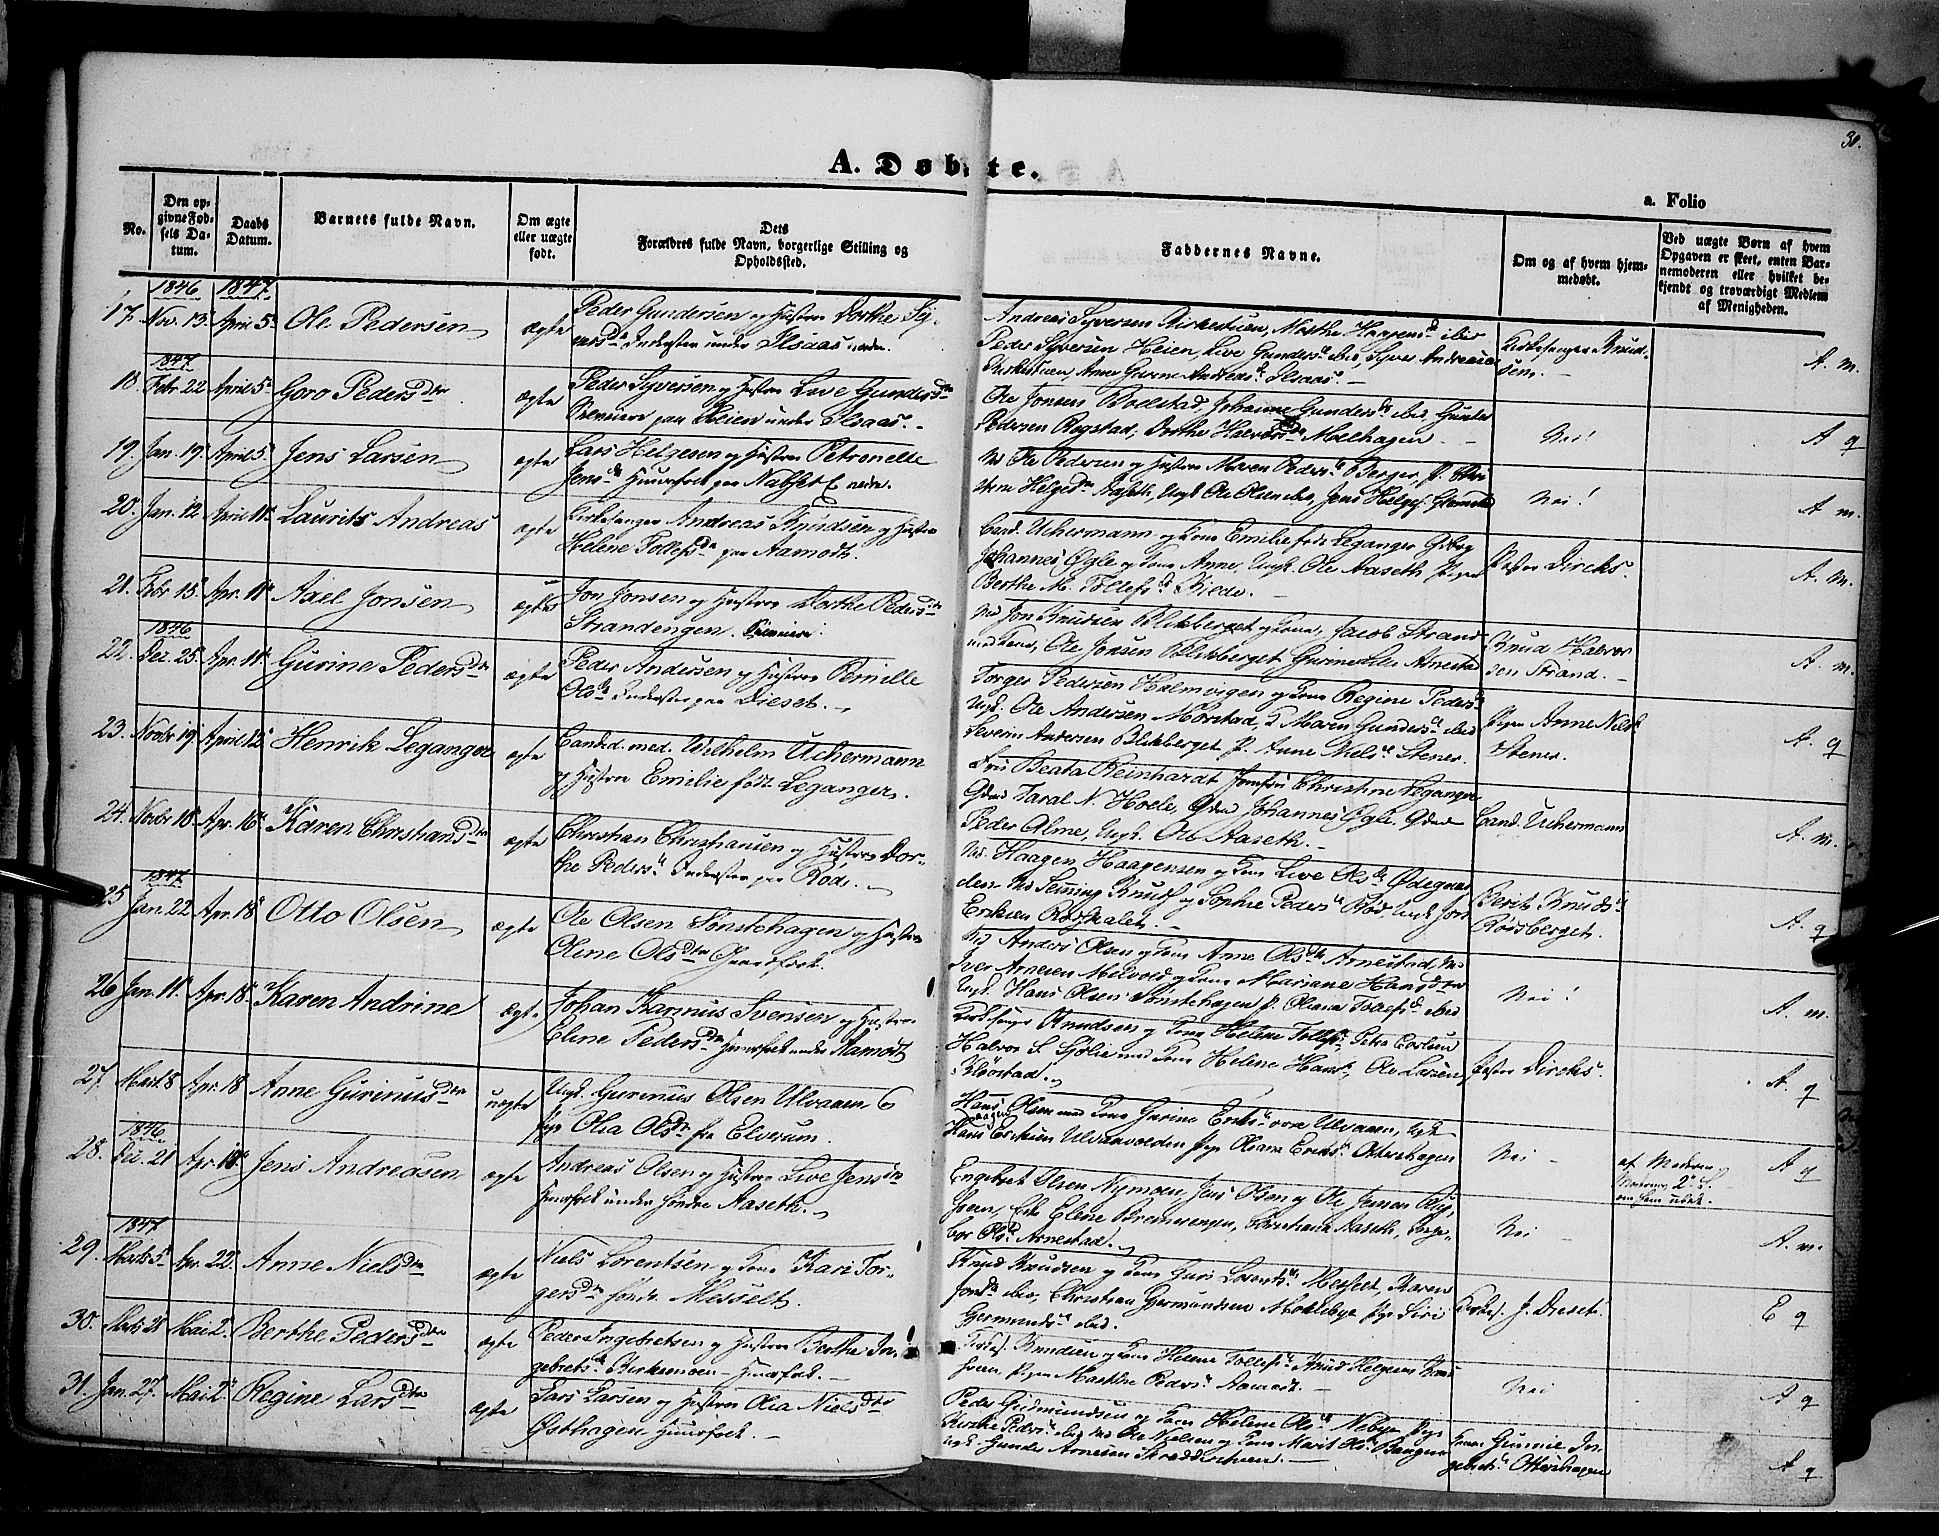 30.
A. Døbte.
a. Folio
No.
Den op-
givne Fød-
sels Da-
tum.
Daabs
Datum.
Barnets fulde Navn.
Om ægte
eller uægte
født.
Dets
Forældres fulde Navn, borgerlige Stilling og
Opholdssted.
Faddernes Navne.
Om og af hvem hjem-
medøbt.
Ved uægte Børn af hvem
Opgaven er skeet, enten Bar-
nemoderen eller hvilket be-
kjendt og troværdigt Medlem
af Menigheden.
1846 1847
17. Nov. 13 April 5 Ole Pedersen ægte
Peder Gundersen og Hustrue Dorthe Sy-
versd Inderster under Ilsaas
Andreas Syversen Birkestuen, Marthe Haagensd ibid
Peder Syversen Heien, Live Gundersd ibid, Syver Andreasen
Birkestuen, Anne Gurine Andreasd Ilsaas.
Kirkesanger Knud-
sen.
A. m.
1847
18. Febr 22 April 5 Goro Pedersdtr ægte
Peder Syversen og Hustrue Live Gundersdtr
paa Heien under Ilsaas.
Ole Jonsen Bolstad, Johanne Gundersd ibid Gunder
Pedersen Rogstad, Dorthe Halvorsd Moelhagen
Nei!
A q
19. Jan. 19 April 5 Jens Larsen ægte
Lars Helgesen og Hustrue Petronelle
Jensd Huusfolk paa
Ole Pedersen og Hustrue Maren Pedersd Berger, P.
Helgesd Aaseth, Ungk. Ole Olsen ibid, Jens Helges.
Nei!
A m.
20. Jan. 12 April 11 Laurits Andreas ægte
Kirkesanger Andreas Knudsen og Hustrue
Helene Tollefsd paa Aamodt.
Cand. Uchermann og Kone Emilie født Leganger
Johannes Øgle og Kone Anne, Ungk. Ole Aaseth Pigen
Berthe M. Tollefsd Kilde.
Pastor Dircks.
A. m.
21. Febr 15 Apr. 11 Axel Jonsen ægte
Jon Jonsen og Hustrue Dorthe Pedersdtr
Strandengen.
Jon Knudsen Blikberget og Kone, Jacob Strand
med Kone, Ole Jonsen Blikberget, Arnestad
Knud Halvor-
sen Strand.
A. m.
1846
22. Dec. 25 Apr. 11 Gurine Pedersdtr ægte
Peder Andersen og Hustrue Pernille
Olsd Inderster paa Dieset.
Torger Pedersen Holmvigen og Kone Regine Pedersd
Ungk. Ole Andersen Mørstad, P Maren Gundersd ibid
Severin Andersen Blikberget P. Anne Nielsd Stener.
Pigen Anne Nielsd
Stener.
A. q
23. Novbr 19 April 12 Henrik Leganger ægte
Candid. med. Wilhelm Uchermann
og Hustrue Emilie født Leganger.
Beata Reinhardt Jomfru Christine Leganger
Gdmd Taral N. Hoele, Gdmd Johannes Øgle. Gdmd
Peder Alme, Ungk. Ole Aaseth.
Cand. Uchermann
A. m.
24. Novbr 18 Apr. 16 Karen Christiansdtr ægte
Christian Christiansen og Hustrue Dor-
the Pedersd Inderster paa Rød.
Haagen Haagensen og Kone Live Olsd Ødegaar-
den. Knuds. og Sophie Pedersd Rød, Ungk. Jon
Eriksen
Berit Knudsd
Rødsberget.
A. q
1847
25 Jan. 22 Apr. 18 Otto Olsen ægte
Ole Olsen Sønstehagen og Hustrue
Oline Olsdtr Gaardfolk.
Anders Olsen og Kone Anne Olsd Arnestad
Iver Arnesen Melvold og Kone Mariane Hansdtr
Ungk. Hans Olsen Sønstehagen P. Oliana Tollefsd ibid
Nei!
A. m.
26 Jan. 11 Apr. 18 Karen Andrine ægte
Johan Rasmus Svensen og Hustrue
Elene Pedersdtr Huusfolk under Aamodt
Kirkesanger Knudsen og Kone Helene Tollefsd, Petra
Halvor S. Sjølie med Kone Helene Hansd, Ole Larsen
Kilørstad.
Pastor Dircks.
A. q
27. Marts 8 Apr. 18 Anne Gurinusdtr uægte
Ungk. Gurinus Olsen Ulvaaen og
Pige Olia Olsdtr fra Elverum.
Hans Olsen med Kone Gurine Eriksd Ulvaaen, Ungk
Hans Eriksen Ulvaavolden Pige Oliana Eriksd Ottershagen
Nei
af Moderen
A q
1846
28. Dec. 21 Apr. 18 Jens Andreasen ægte
Andreas Olsen og Hustrue Live Jensdtr
Huusfolk under søndre Aaseth.
Engebret Olsen Nymoen, Jens Olsen og Ole Jensen
Elene Bremmengen, Christiane Aaseth, Inge-
bor Olsd Arnestad.
Nei
A. m.
1847
29. Marts 5 Apr. 22 Anne Nielsdtr ægte
Niels Lorentsen og Kone Kari Tor-
gersdtr søndr. Messelt.
Knud Knudsen og Kone Guri Lorentsd Messelt, Karen
Jonsd ibid, Christian Germundsen Pige Siri
Germundsd ibid.
Kirkes. J. Dieset.
E q
30. Marts 28 Mai 2 Berthe Pedersdtr ægte
Peder Ingebretsen og Hustrue Berthe In-
gebretsd Birkemoen Huusfolk.
Kirkes. Knudsen og Kone Helene Tollefsd Knud Helgesen
Pigen Marthe Pedersd Aamodt.
Nei
A q
31. Jan. 27. Mai 2 Regine Larsdtr ægte
Lars Larsen og Hustrue Olia Nielsdtr
Østhagen Huusfolk.
Peder Gudmundsen og Kone Helene Olsd Nebye Pige
Pedersd ibid Ole Nielsen og Kone Marit Olsd
Ungk. Gunder Arnesen
Gunnie In-
gebretsd Ottershagen
A q